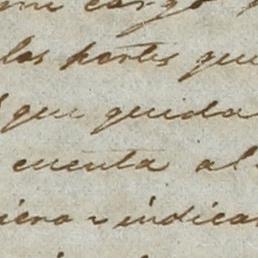 cargo
las partes que
que queda
cuenta al
iera vindica